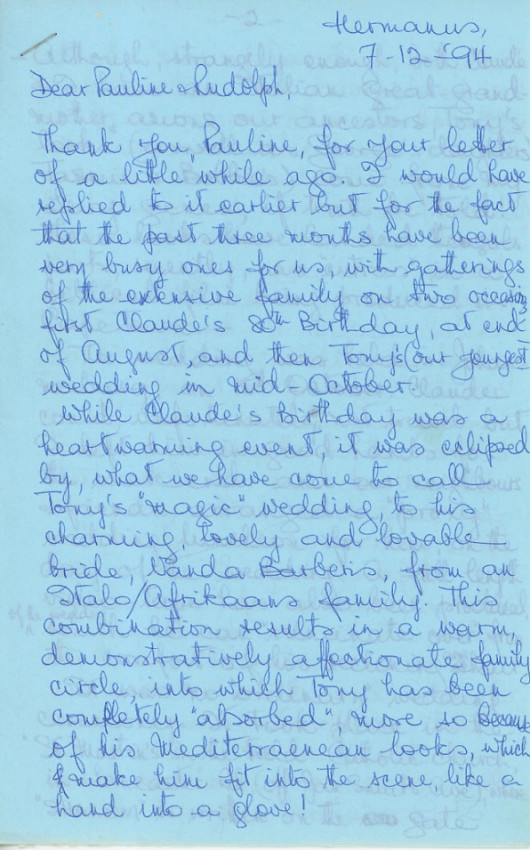 Hermanus,
7-12-'94
Dear Pauline & Rudolph,
Thank you, Pauline, for your letter
of a little while ago. I would have
replied to it earlier but for the fact
that the past three months have been
very busy ones for us, with gatherings
of the extensive family on two occasions
first Claude's 80th Birthday, at end
of August, and then Tony's (our youngest
wedding in mid-October.
While Claude's Birthday was a
heartwarming event it was eclipsed
by, what we have come to call
Tony's "magic" wedding, to his
charming, lovely and lovable
bride, Wanda Barberis, from an
Italo/Afrikaans family. This
combination results in a warm,
demonstratively affectionate family
circle, into which Tony has been
completely "absorbed", more so because
of his Mediterraenean looks, which
make him fit into the scene like a
hand into a glove!